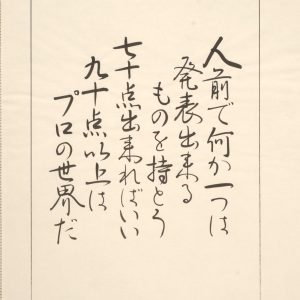 人前で何か一つは
発表出来る
ものを持とう
七十点出来ればいい
九十点以上は
プロの世界だ